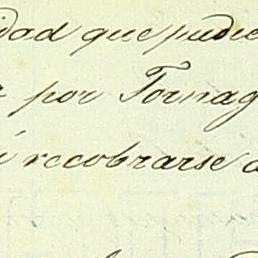 idad que pudie
por Tornag
recobrarse a